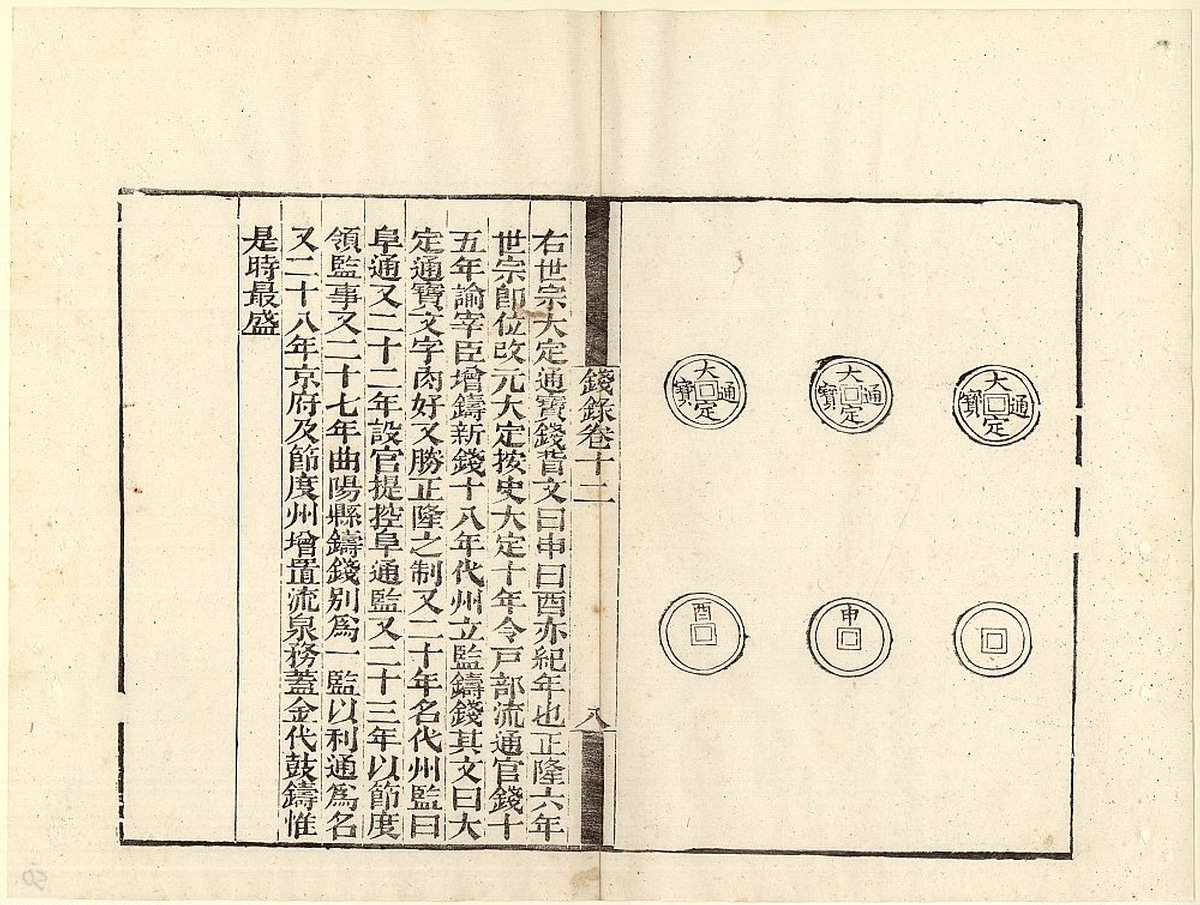 大定通寶
大定通寶
大定通寶
申
酉
錢錄卷十二
八
右世宗大定通寶錢背文曰申曰酉亦紀年也正隆六年
世宗卽位改元大定按史大定十年令戸部流通官錢十
五年諭宰臣增鑄新錢十八年代州立監鑄錢其文曰大
定通寶文字肉好又勝正隆之制又二十年名代州監曰
阜通又二十二年設官提控阜通監又二十三年以節度
領監事又二十七年曲陽縣鑄錢别爲一監以利通爲名
又二十八年京府及節度州增置流泉務蓋金代鼓鑄惟
是時最盛